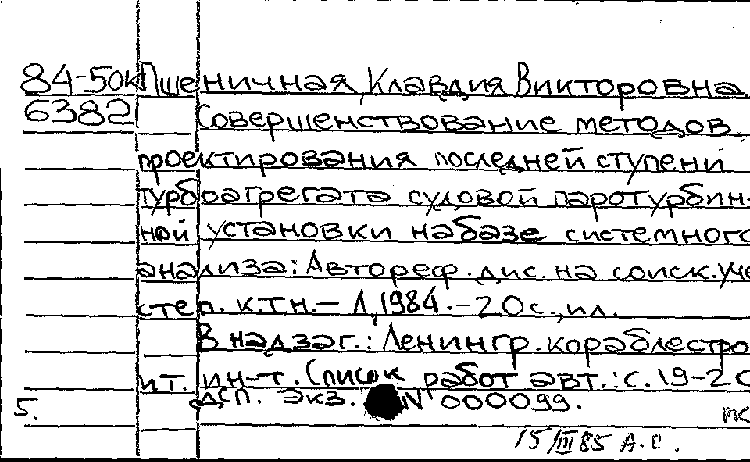 84-50к Пшеничная Клавдия Викторовна
6382 Совершенствование методов
проектирования последней ступени
турбоагрегата судовой паротурбин-
ной установки на базе системного
анализа: Автореф. дис. на соиск. уче
степ. к.т.н. – Л, 1984. – 20 с., ил.
В надзаг.: Ленингр. кораблестро
ит. ин-т. Список работ авт.: с. 19-20
5. дсп. Экз. № 000099.
15/III 85 А.С.